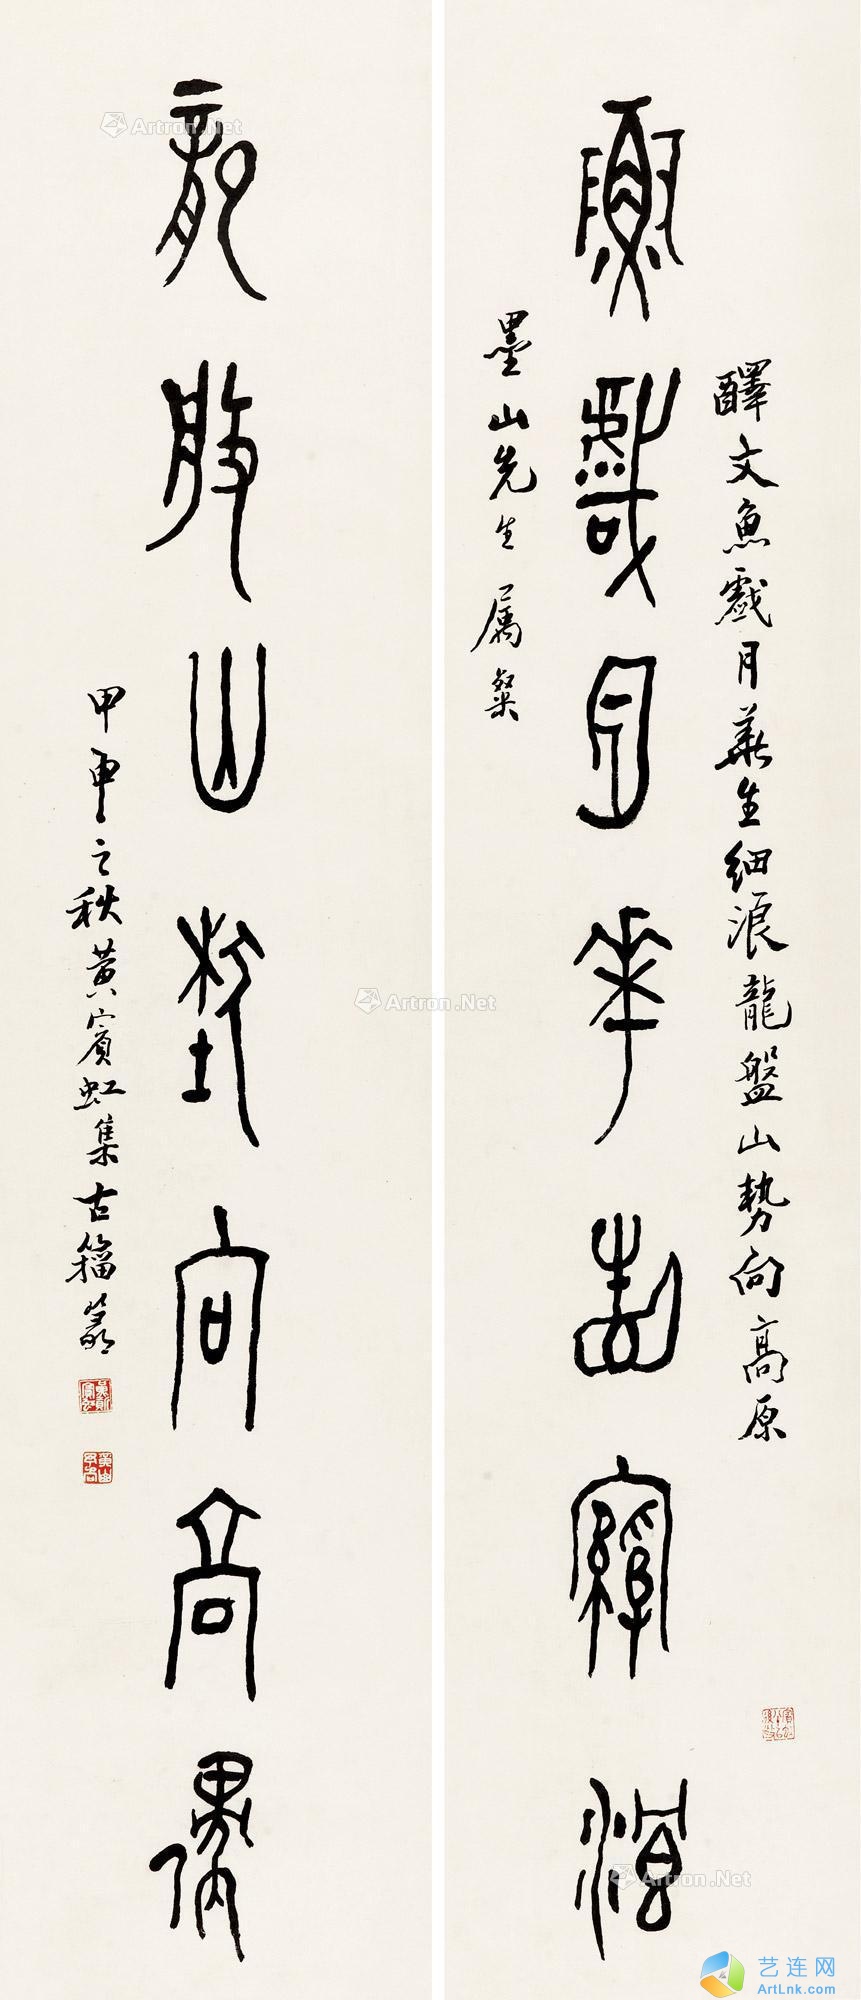 魚戲月華生細浪
龍盤山勢向高原
釋文魚戲月華生細浪龍盤山勢向高原
墨山先生属粲
甲申之秋黃賓虹集古籀篆
Artron.Net
Artron.Net
Artron.Net
Artron.Net
艺连网
ArtLnk.com